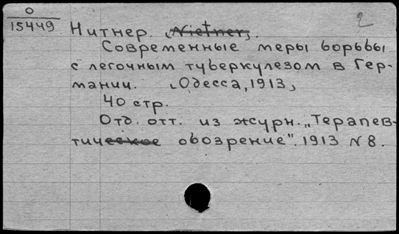 0
15449
2
Нитнер. (Nietner).
Современные меры борьбы
с легочным туберкулезом в Гер-
мании. (Одесса, 1913)
40 стр.
Отд. отт. из журн. „Терапев-
тическое обозрение". 1913 N 8.